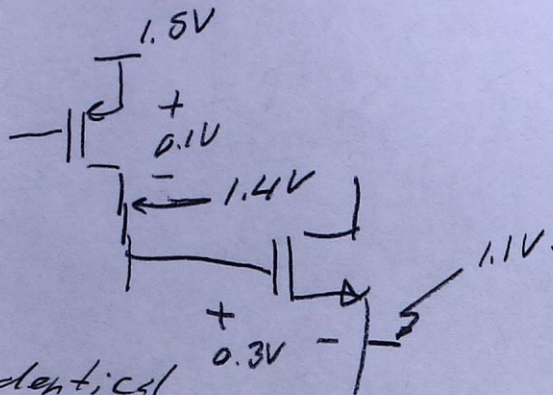 1.5V
+
0.1V
-
1.4V
1.1V.
+
0.3V -
dentical